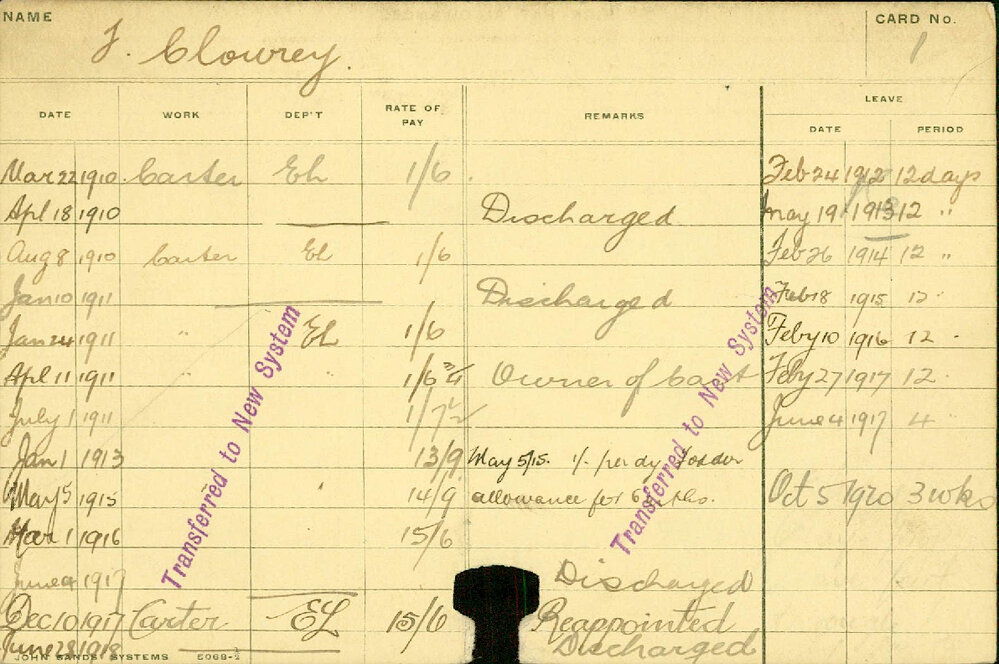 NAME
J. Clowrey.
CARD No.
1
DATE WORK DEP'T RATE OF PAY REMARKS LEAVE
DATE PERIOD
Mar 22 1910. Carter EL 1/6. Feb 24 1912 12 days
Apl 18 1910 Discharged May 19 1913 12 "
Aug 8 1910 Carter EL 1/6 Feb 26 1914 12 "
Jan 10 1911 Discharged Feb 18 1915 12 "
Jan 24 1911 " EL 1/6 Feby 10 1916 12 "
Apl 11 1911 " " 1/6 3/4 Owner of Cart Feby 27 1917 12 "
July 1 1911 1/7 1/2 June 4 1917 4
Jan 1 1913 13/9 May 5/15. 1/- per dy Fodder
May 5 1915 " 14/9 allowance for 6 Oct 5 1920 3 wks
Mar 1 1916 15/6
June 4 1917 Discharged
Dec 10 1917 Carter EL 15/6 Reappointed
June 28 1918 Discharged
Transferred to New System
Transferred to New System
JOHN SANDS SYSTEMS 5068-2